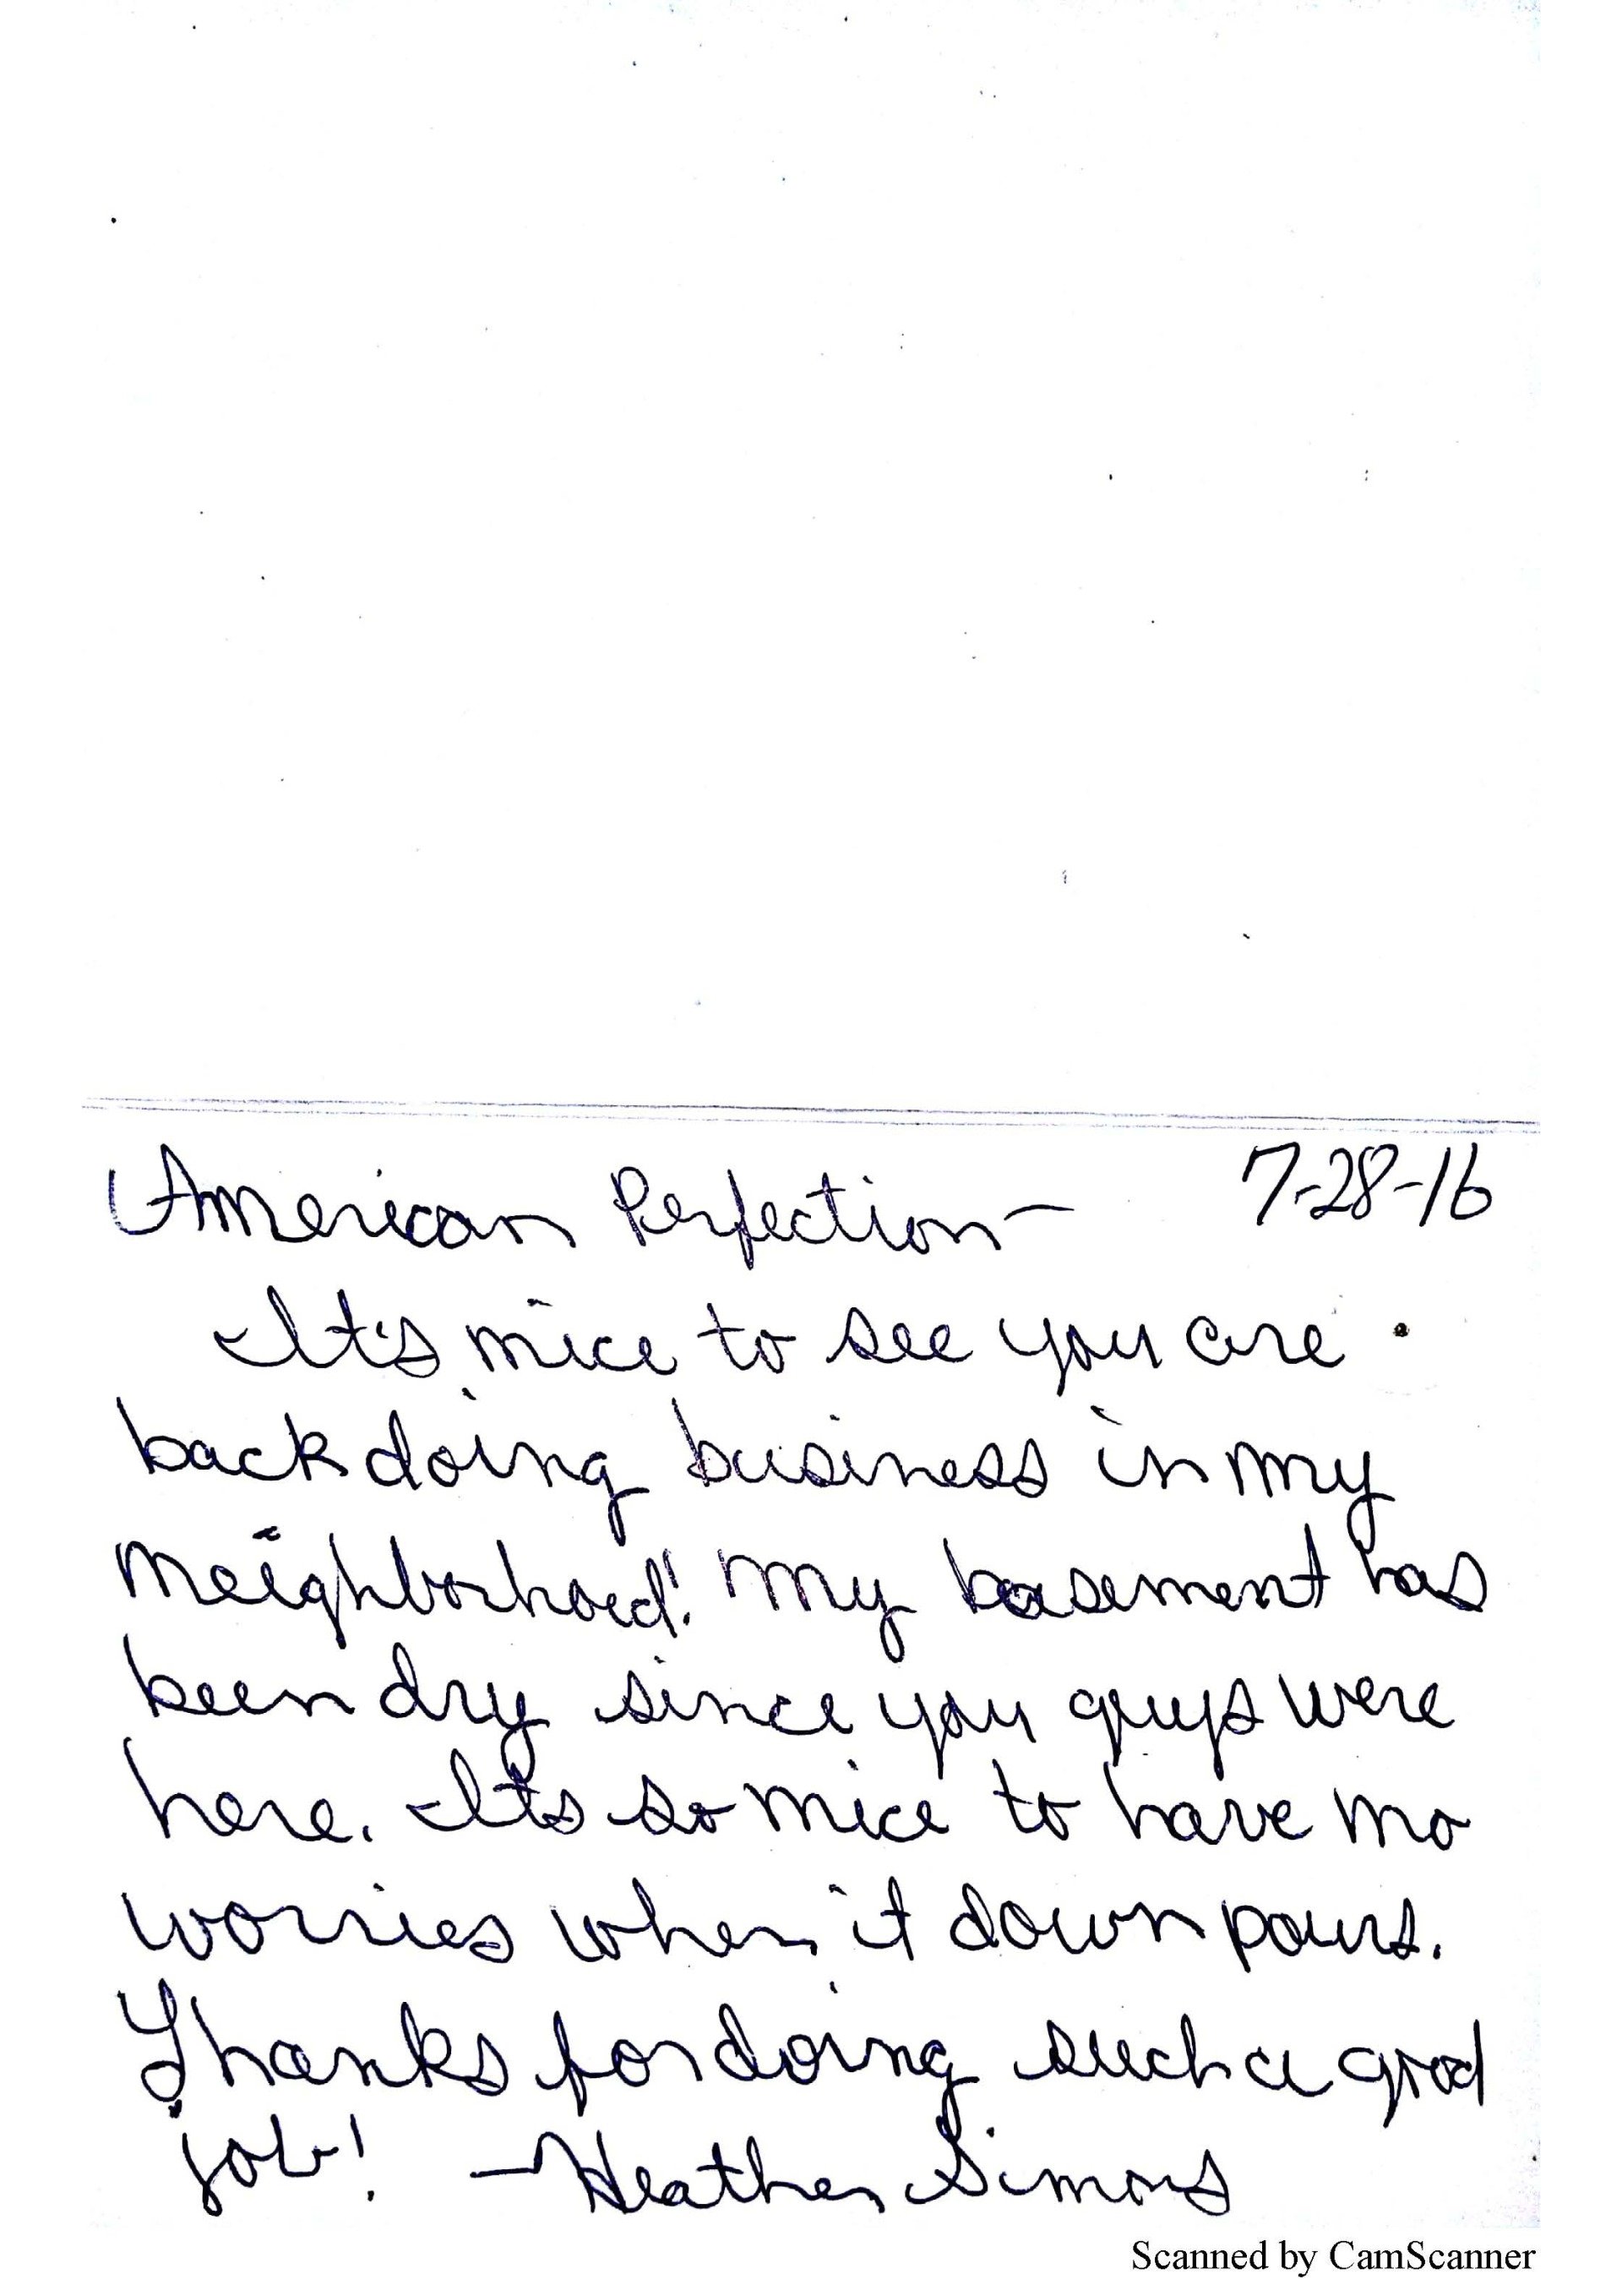 American Perfection— 7-28-16
It's nice to see you are
back doing business in my
neighborhood! My basement has
been dry since you guys were
here. It's so nice to have no
worries when it down pours.
Thanks for doing such a good
job! —Heather Simons
Scanned by CamScanner